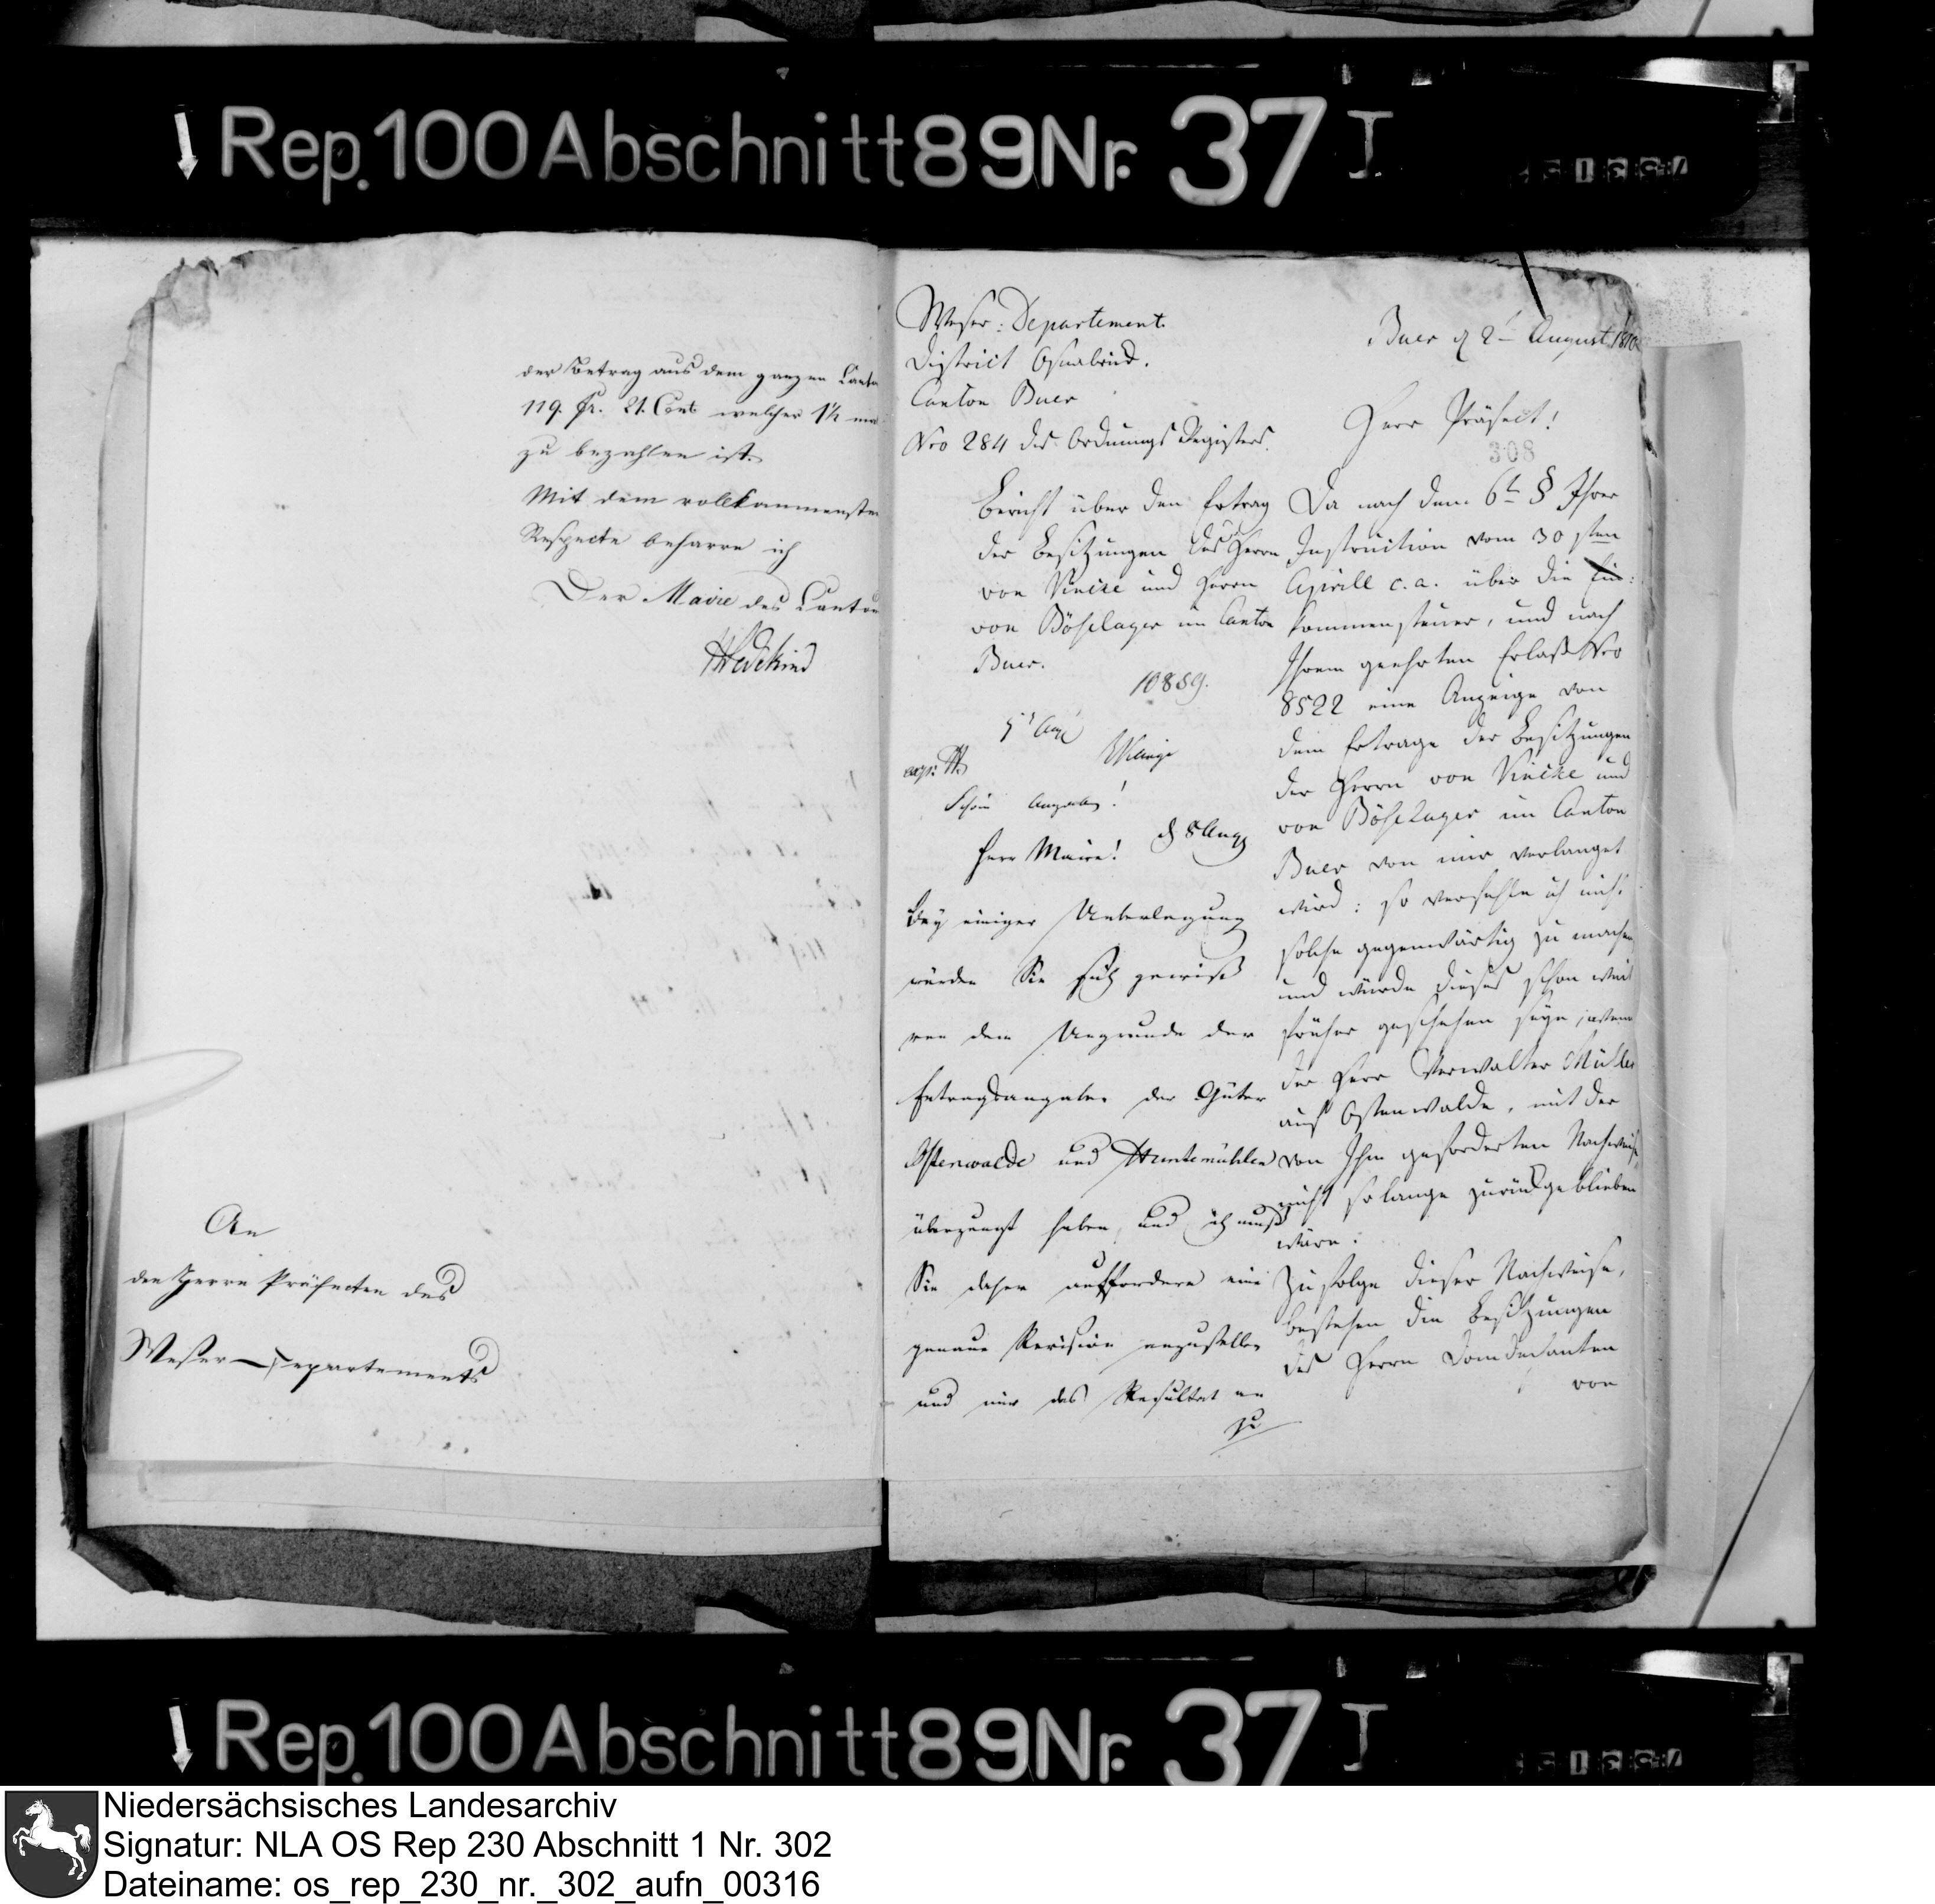 Rep. 100 Abschnitt 89 Nr. 37 I
der Betrag aus dem ganzen Canto
119. fr. 21. Cent. welcher 1½ mal
zu bezahlen ist.
Mit dem vollkommensten
Respecte beharre ich
Der Maire des Cantons
Wedekind
An
den Herrn Präfecten des
Weser-Departements
Weser-Departement.
District Osnabrück.
Canton Buer
Nro 284 des Ordnungs Registers.
Bericht über den Ertrag
der Besitzungen des Herrn
von Vincke und Herrn
von Böselager im Canton
Buer.
10889.
5t Aug
Herr Maire!
d 8 Aug
Bey einiger Ueberlegung
würden Sie sich gewiß
von dem Ungrunde der
Ertragsangabe der Güter
Ostenwalde und Huntemühlen
überzeugt haben, und ich muß
Sie daher auffordern eine
genaue Revision anzustellen
und mir das Resultat an
zu
Buer d 2t August 1810
Herr Präfect!
308
Da nach dem 6t § Ihrer
Instruction vom 30 sten
Aprill c. a. über die Ein:
kommensteuer, und nach
Ihrem geehrten Erlaß Nro
8522 eine Anzeige von
dem Ertrage der Besitzungen
der Herrn von Vincke und
von Böselager im Canton
Buer von mir verlanget
wird: so verfehle ich nicht
solche gegenwärtig zu machen
und würde dieses schon weit
früher geschehen seyn, wenn
der Herr Verwalter Müller
auf Ostenwalde, mit der
von Ihm geforderten Nachweise
nicht so lange zurückgeblieben
wäre.
Zufolge dieser Nachweise,
bestehen die Besitzungen
des Herrn Domdechanten
von
Rep. 100 Abschnitt 89 Nr. 37 I
Niedersächsisches Landesarchiv
Signatur: NLA OS Rep 230 Abschnitt 1 Nr. 302
Dateiname: os_rep_230_nr._302_aufn_00316